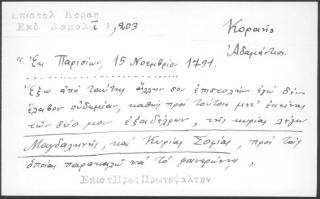 Επιστολ Κοραη
Εκδ Δαμαλᾶ Ι,203
Κοραῆς
Ἀδαμάντιος.
"Ἐκ Παρισίων, 15 Νοεμβρίου 1791.
Ἔξω ἀπὸ ταύτης ἄλλην σου ἐπιστολὴν ἐγὼ δὲν
ἔλαβον οὐδεμίαν, καθὼς πρὸ τούτου μετ' ἐκείνας
τῶν δύο μου ἐξαδέλφων, τῆς κυρίας λέγω
Μαγδαληνῆς, καὶ Κυρίας Σοφίας, πρὸς τὰς
ὁποίας παρακαλῶ νὰ τὸ φανερώσῃς"
ΕπιστΠροςΠρωτοψαλτην